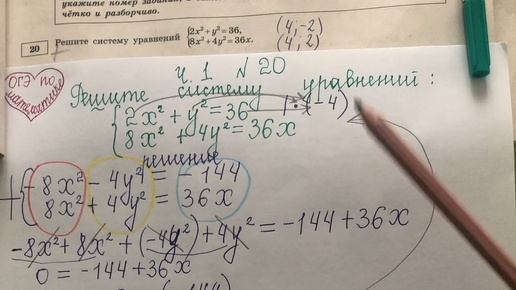 укажите номер задания, а
чётко и разборчиво.
20 Решите систему уравнений {2x² + y² = 36,
8x² + 4y² = 36x.
(4; -2)
(4; 2)
ОГЭ по математике
ч. 1 № 20
Решите систему уравнений:
{2x² + y² = 36 | • (-4)
8x² + 4y² = 36x
решение
+ {-8x² - 4y² = -144
8x² + 4y² = 36x
-8x² + 8x² + (-4y²) + 4y² = -144 + 36x
0 = -144 + 36x